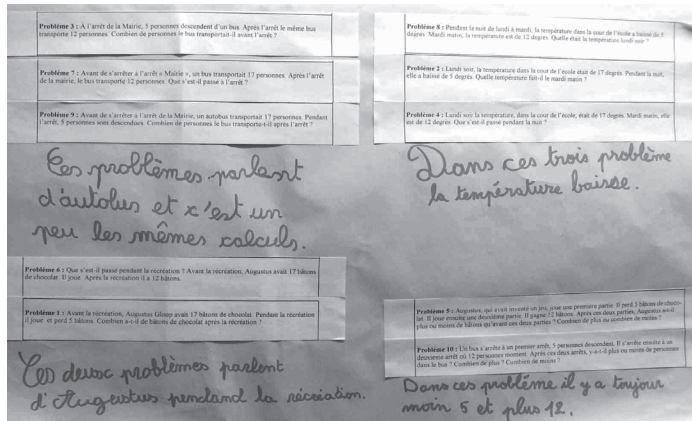 Problème 3 : À l'arrêt de la Mairie, 5 personnes descendent d'un bus. Après l'arrêt le même bus
transporte 12 personnes. Combien de personnes le bus transportait-il avant l'arrêt ?
Problème 7 : Avant de s'arrêter à l'arrêt « Mairie », un bus transportait 17 personnes. Après l'arrêt
de la mairie, le bus transporte 12 personnes. Que s'est-il passé à l'arrêt ?
Problème 9 : Avant de s'arrêter à l'arrêt de la Mairie, un autobus transportait 17 personnes. Pendant
l'arrêt, 5 personnes sont descendues. Combien de personnes le bus transporte-t-il après l'arrêt ?
Ces problèmes parlent
d'autobus et c'est un
peu les mêmes calculs.
Problème 6 : Que s'est-il passé pendant la récréation ? Avant la récréation, Augustus avait 17 bâtons
de chocolat. Il joue. Après la récréation il a 12 bâtons.
Problème 1 : Avant la récréation, Augustus Gloop avait 17 bâtons de chocolat. Pendant la récréation
il joue et perd 5 bâtons. Combien a-t-il de bâtons de chocolat après la récréation ?
Ces deux problèmes parlent
d'Augustus pendand la récréation.
Problème 8 : Pendant la nuit de lundi à mardi, la température dans la cour de l'école a baissé de 5
degrés. Mardi matin, la température est de 12 degrés. Quelle était la température lundi soir ?
Problème 2 : Lundi soir, la température dans la cour de l'école était de 17 degrés. Pendant la nuit,
elle a baissé de 5 degrés. Quelle température fait-il le mardi matin ?
Problème 4 : Lundi soir la température, dans la cour de l'école, était de 17 degrés. Mardi matin, elle
est de 12 degrés. Que s'est-il passé pendant la nuit ?
Dans ces trois problème
la température baisse.
Problème 5 : Augustus, qui avait inventé un jeu, joue une première partie. Il perd 5 bâtons de choco-
lat. Il joue ensuite une deuxième partie. Il gagne 12 bâtons. Après ces deux parties, Augustus a-t-il
plus ou moins de bâtons qu'avant ces deux parties ? Combien de plus ou combien de moins ?
Problème 10 : Un bus s'arrête à un premier arrêt, 5 personnes descendent. Il s'arrête ensuite à un
deuxième arrêt où 12 personnes montent. Après ces deux arrêts, y-a-t-il plus ou moins de personnes
dans le bus ? Combien de plus ? Combien de moins ?
Dans ces problème il y a toujour
moin 5 et plus 12.